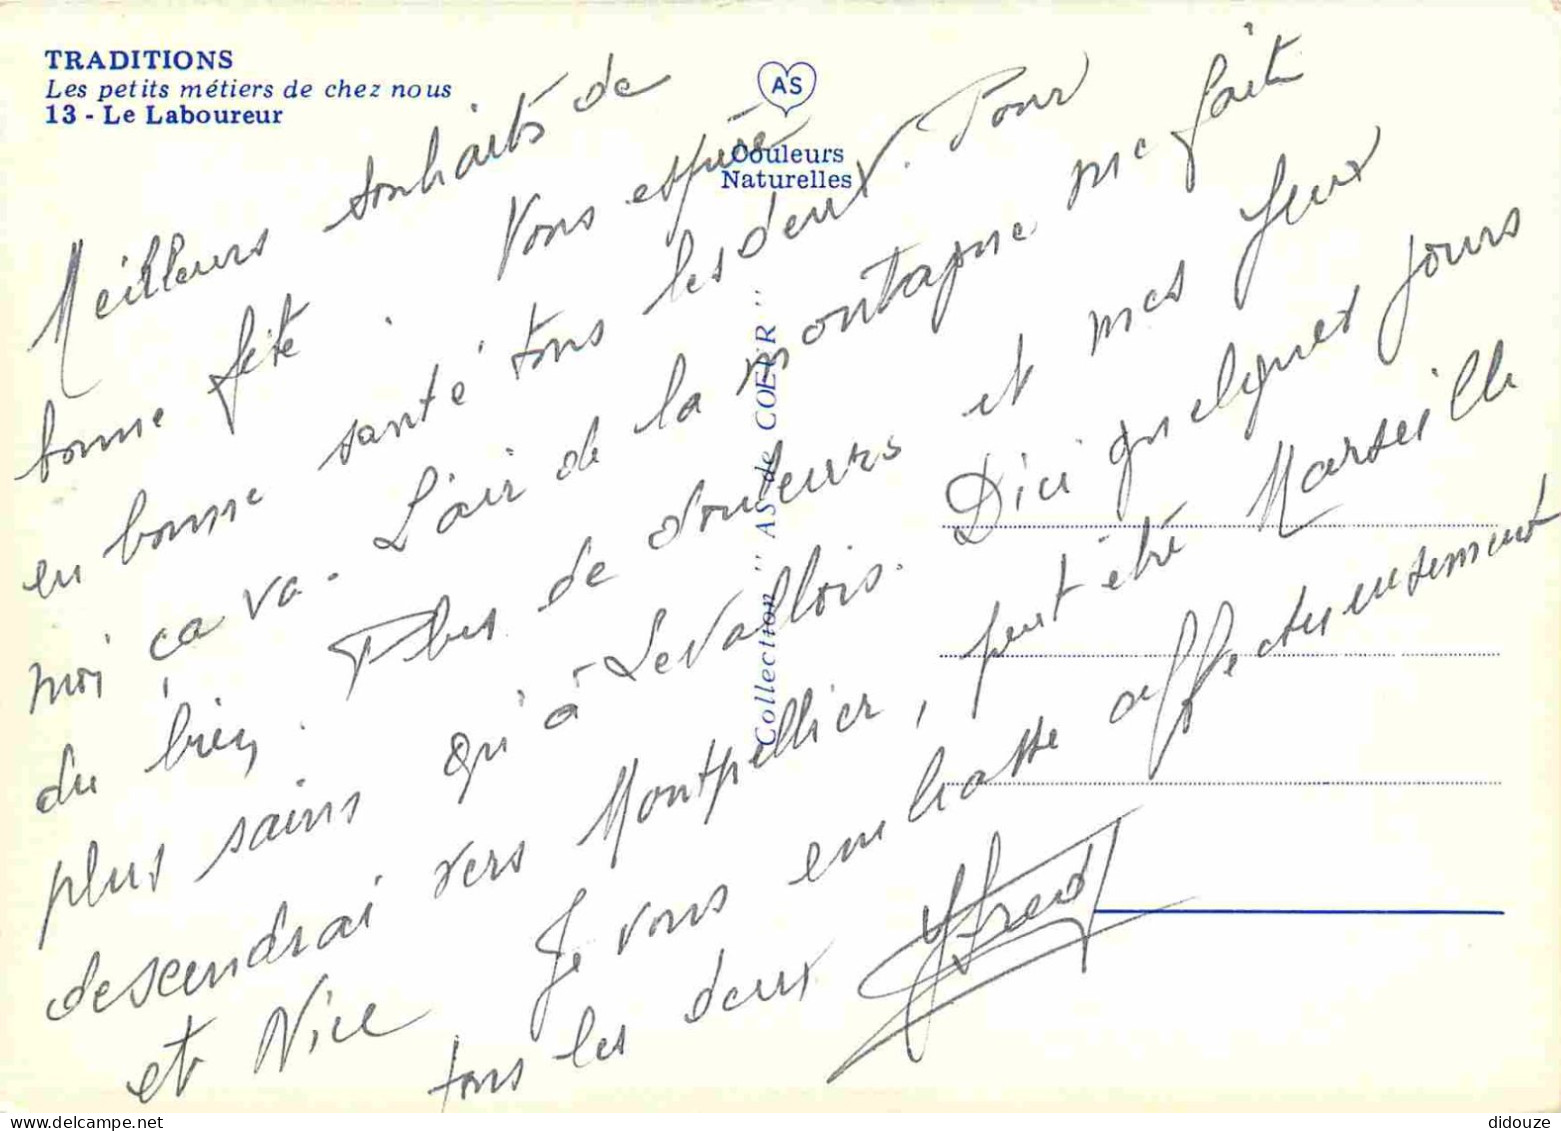 TRADITIONS
Les petits métiers de chez nous
13 - Le Laboureur
AS
Couleurs
Naturelles
Collection "AS de COEUR"
Meilleurs souhaits de
bonne fête. Vous espère
en bonne santé tous les deux. Pour
moi ça va. L'air de la montagne me fait
du bien. Plus de douleurs et mes yeux
plus sains qu'à Levallois. D'ici quelques jours
descendrai vers Montpellier, peut être Marseille
et Nice Je vous embrasse affectueusement
tous les deux
didouze